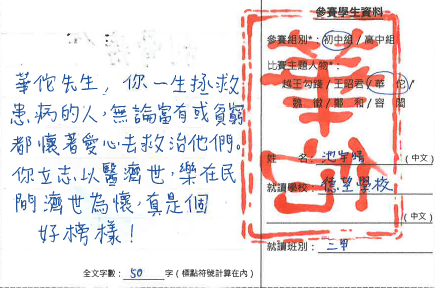 華佗先生，你一生拯救
患病的人，無論富有或貧窮
都懷著愛心去救治他們。
你立志以醫濟世，樂在民
間濟世為懷，真是個
好榜樣！
全文字數： 50 字（標點符號計算在內）
參賽學生資料
參賽組別*：初中組 / 高中組
比賽主題人物*：
越王勾踐 / 王昭君 / 華佗 /
魏徵 / 鄭和 / 容閎
姓名： （中文）
就讀學校： 德望學校
（中文）
就讀班別： 三甲
華佗